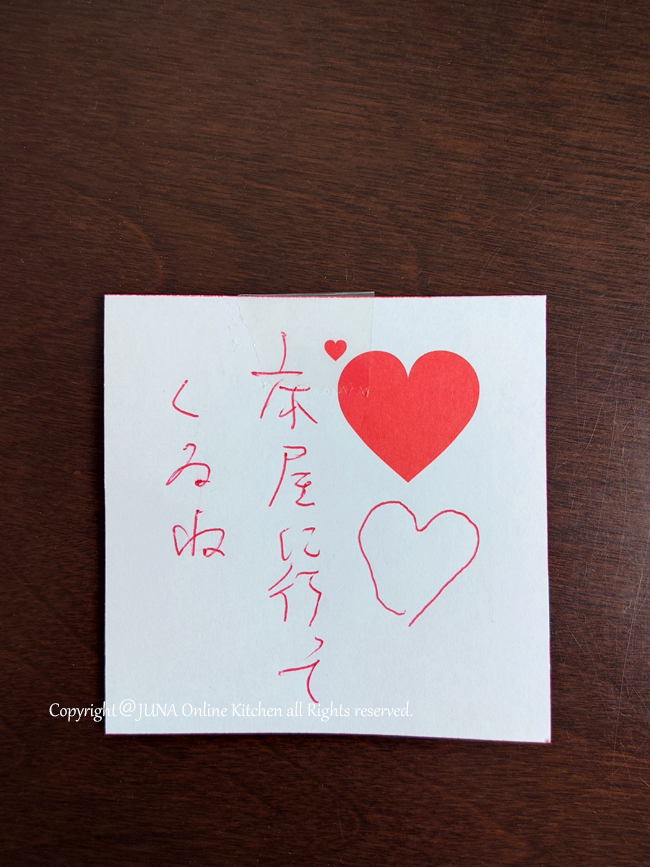 床屋に行って
くるね
Copyright @JUNA Online Kitchen all Rights reserved.